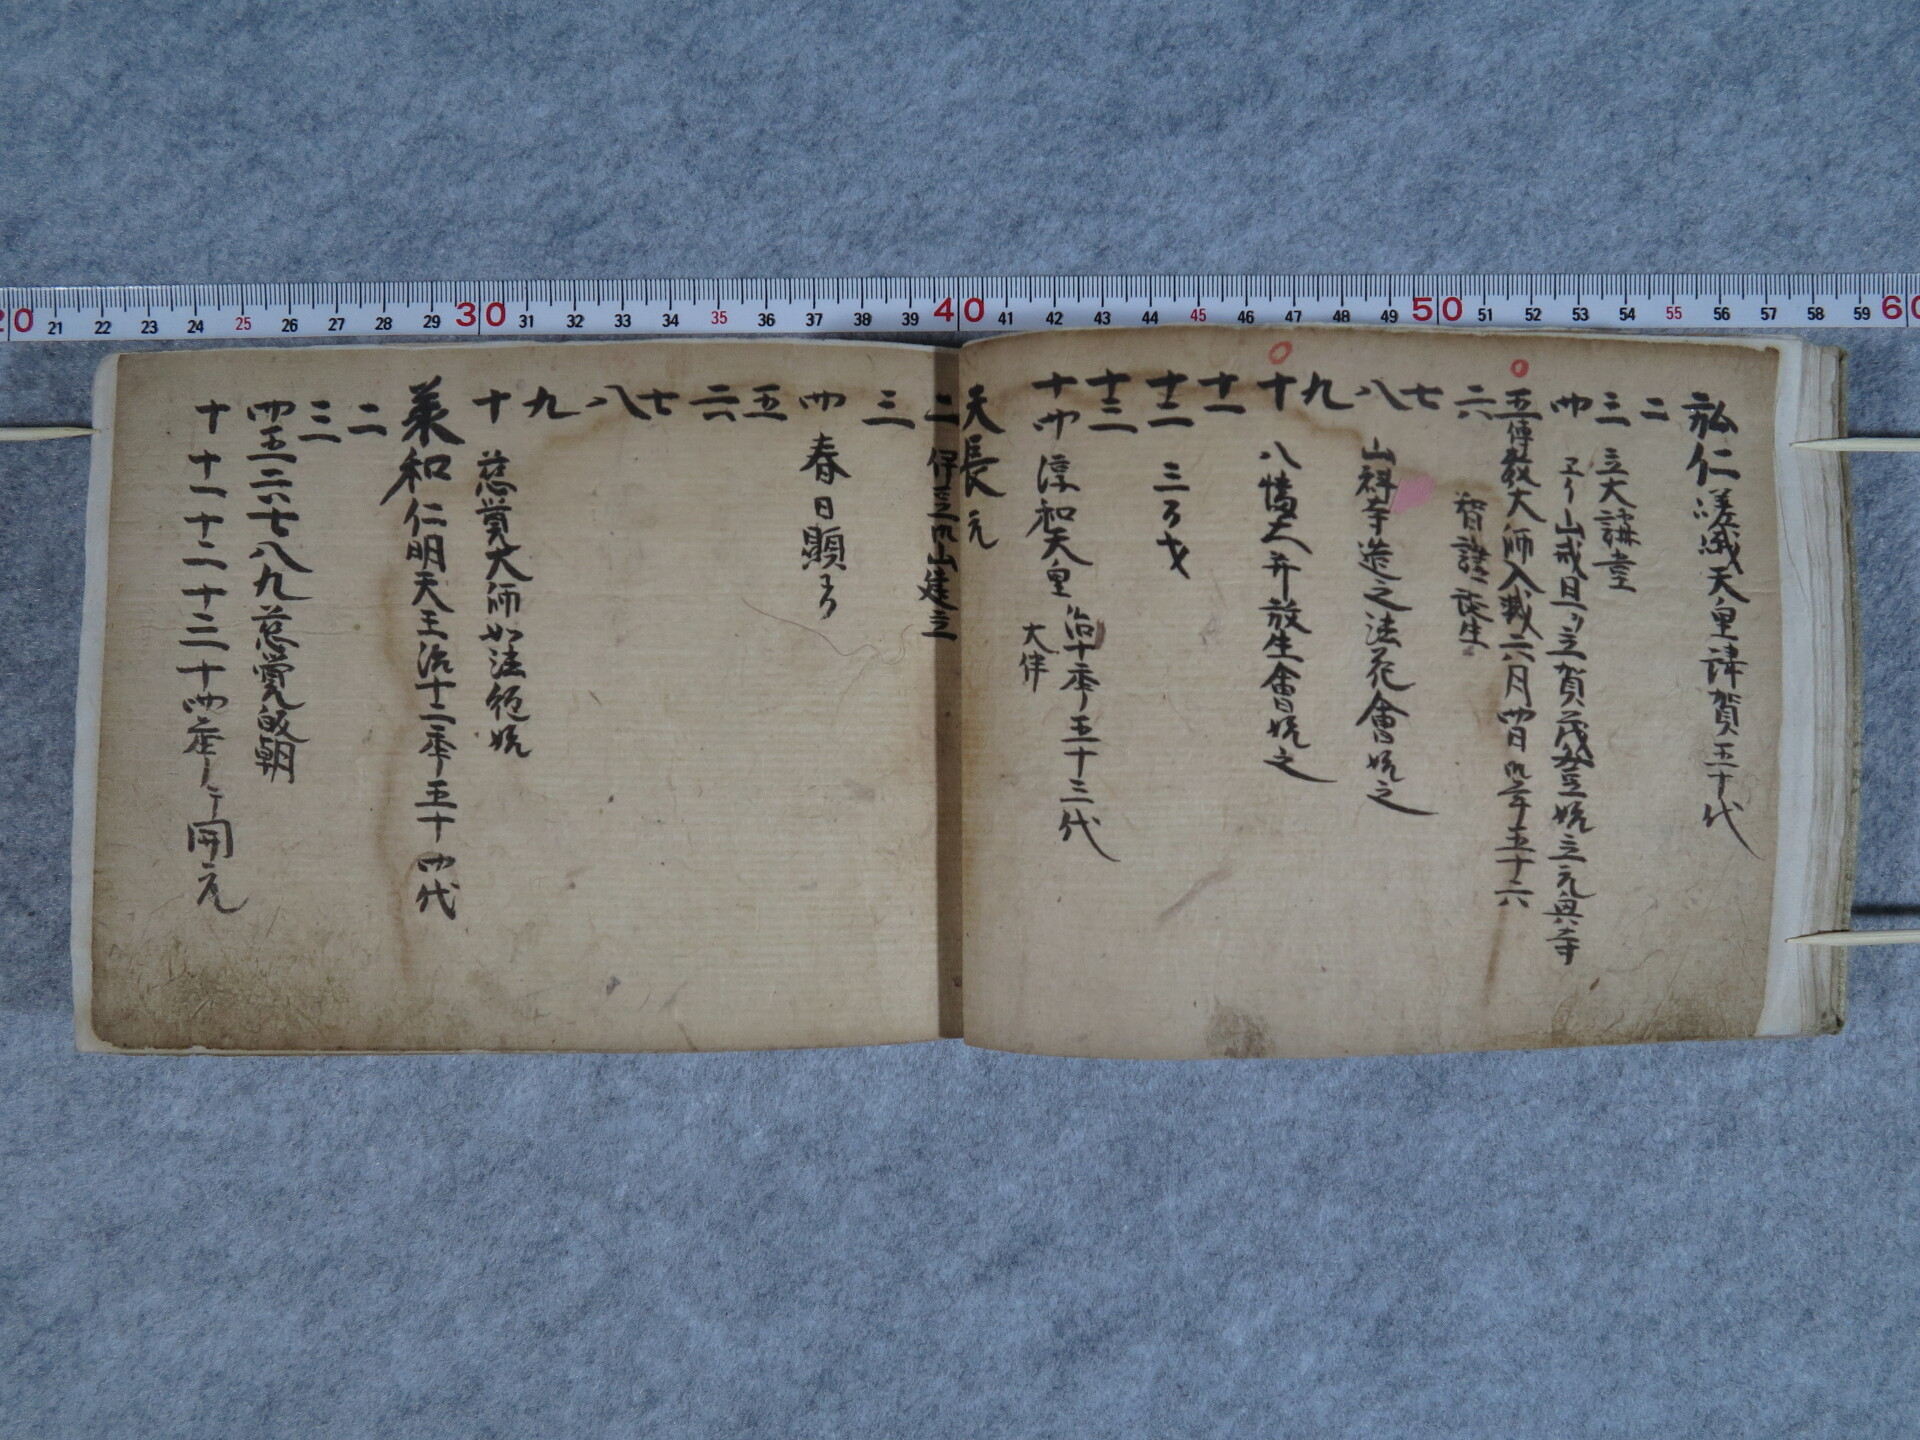 弘仁 嵯峨天皇諱賀五十代
二
三 立大講堂
四 山戒旦 立賀茂祭 始立元興寺
五 傳教大師入滅六月四日 年五十六
六 智證誕生
七
八 山科寺造之法花會始之
九
十 八幡大井放生會始之
十一
十二 三
十三
十四 淳和天皇 治十年五十三代
大伴
天長元
二 山建立
三
四 春日顕
五
六
七
八
九
十 慈覚大師如法経始
承和 仁明天王治十二年五十四代
二
三
四五六七八九慈覚皈朝
十十一十二十三十四年 開元
20 21 22 23 24 25 26 27 28 29 30 31 32 33 34 35 36 37 38 39 40 41 42 43 44 45 46 47 48 49 50 51 52 53 54 55 56 57 58 59 60